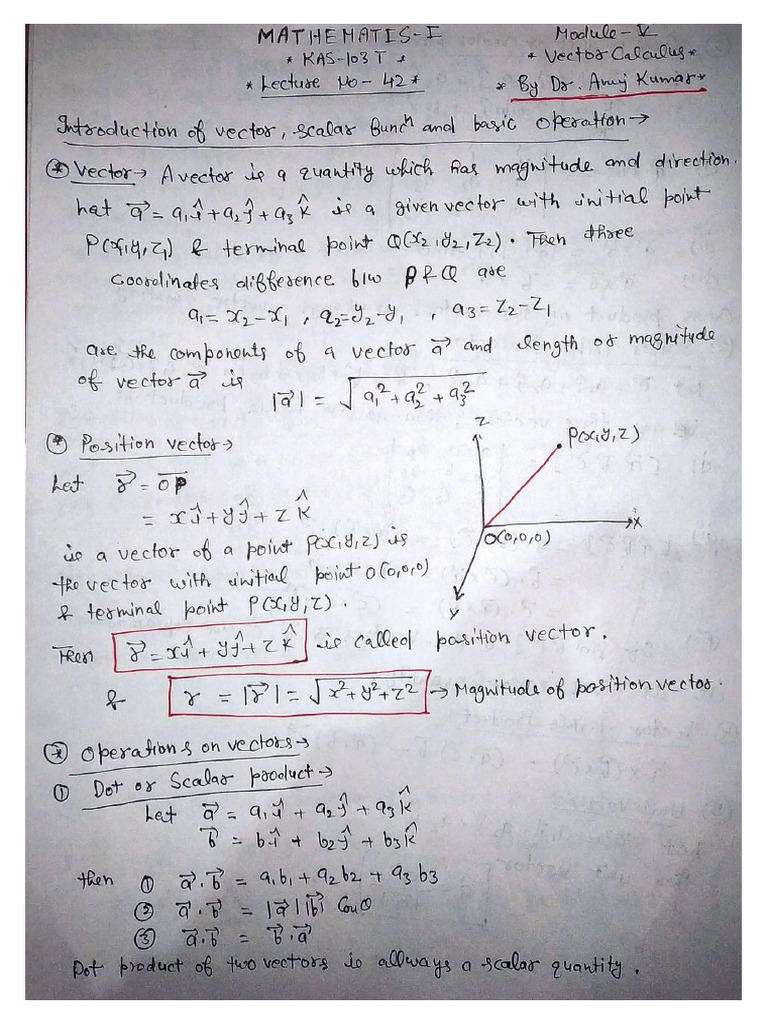 MATHEMATIS-I
Module-V
* KAS-103T *
* Vector Calculus *
* Lecture No-42 *
* By Dr. Anuj Kumar *
Introduction of vector, scalar funcⁿ and basic operation→
* Vector→ A vector is a quantity which has magnitude and direction.
Let a⃗ = a₁î + a₂ĵ + a₃k̂ is a given vector with initial point
P(x₁,y₁,z₁) & terminal point Q(x₂,y₂,z₂). Then three
coordinates difference b/w P & Q are
a₁= x₂-x₁ , a₂=y₂-y₁ , a₃=z₂-z₁
are the components of a vector a⃗ and length or magnitude
of vector a⃗ is
|a⃗| = √(a₁²+a₂²+a₃²)
* Position vector→
Let r⃗ = OP
= xî + yĵ + zk̂
is a vector of a point P(x,y,z) is
the vector with initial point O(0,0,0)
& terminal point P(x,y,z).
Z
P(x,y,z)
X
O(0,0,0)
Y
Then r⃗ = xî + yĵ + zk̂ is called position vector.
& r = |r⃗| = √(x²+y²+z²) → Magnitude of position vector.
* Operations on vectors→
① Dot or Scalar product→
Let a⃗ = a₁î + a₂ĵ + a₃k̂
b⃗ = b₁î + b₂ĵ + b₃k̂
then ① a⃗.b⃗ = a₁b₁ + a₂b₂ + a₃b₃
② a⃗.b⃗ = |a⃗||b⃗| Cosθ
③ a⃗.b⃗ = b⃗.a⃗
Dot product of two vectors is allways a scalar quantity.